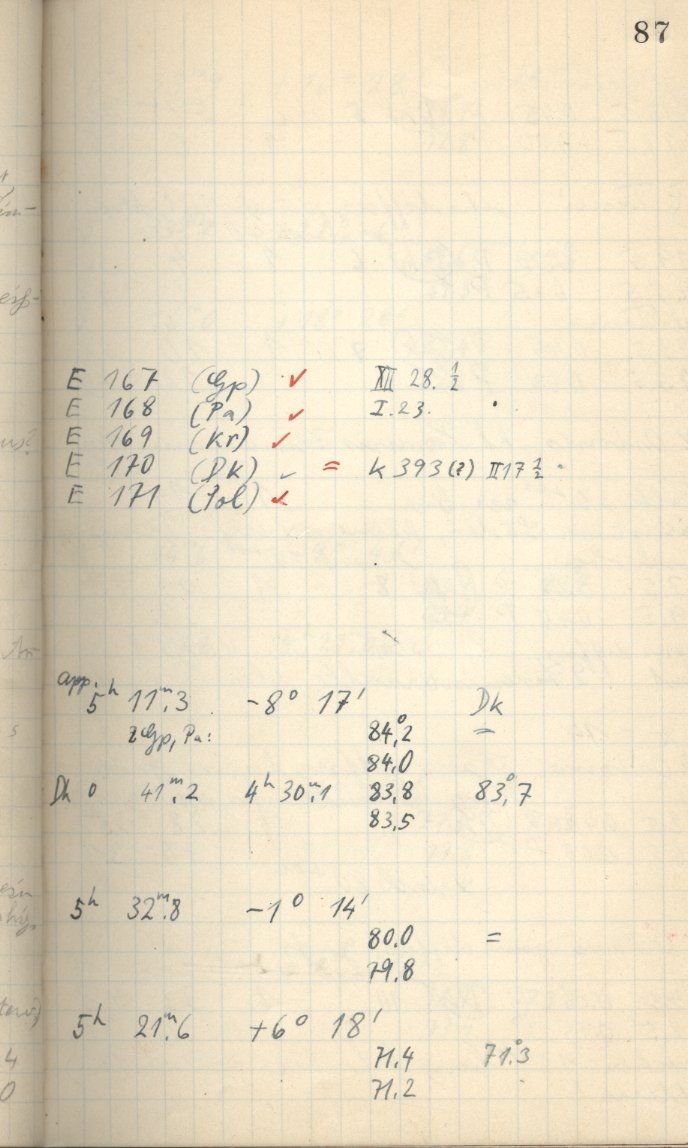 87
E 167 (Gp) ✓ XII 28. ½
E 168 (Pa) ✓ I.23.
E 169 (Kr) ✓
E 170 (Dk) ✓ = K 393 (?) II 17 ½
E 171 (Pol) ✓
app.
5ʰ 11ᵐ.3 -8° 17' Dk
Gp, Pa: 84°,2 =
84,0
Dk 0 41ᵐ.2 4ʰ 30ᵐ.1 83,8 83°,7
83,5
5ʰ 32ᵐ.8 -1° 14'
80.0 =
79.8
5ʰ 21ᵐ.6 +6° 18'
71.4 71°.3
71.2